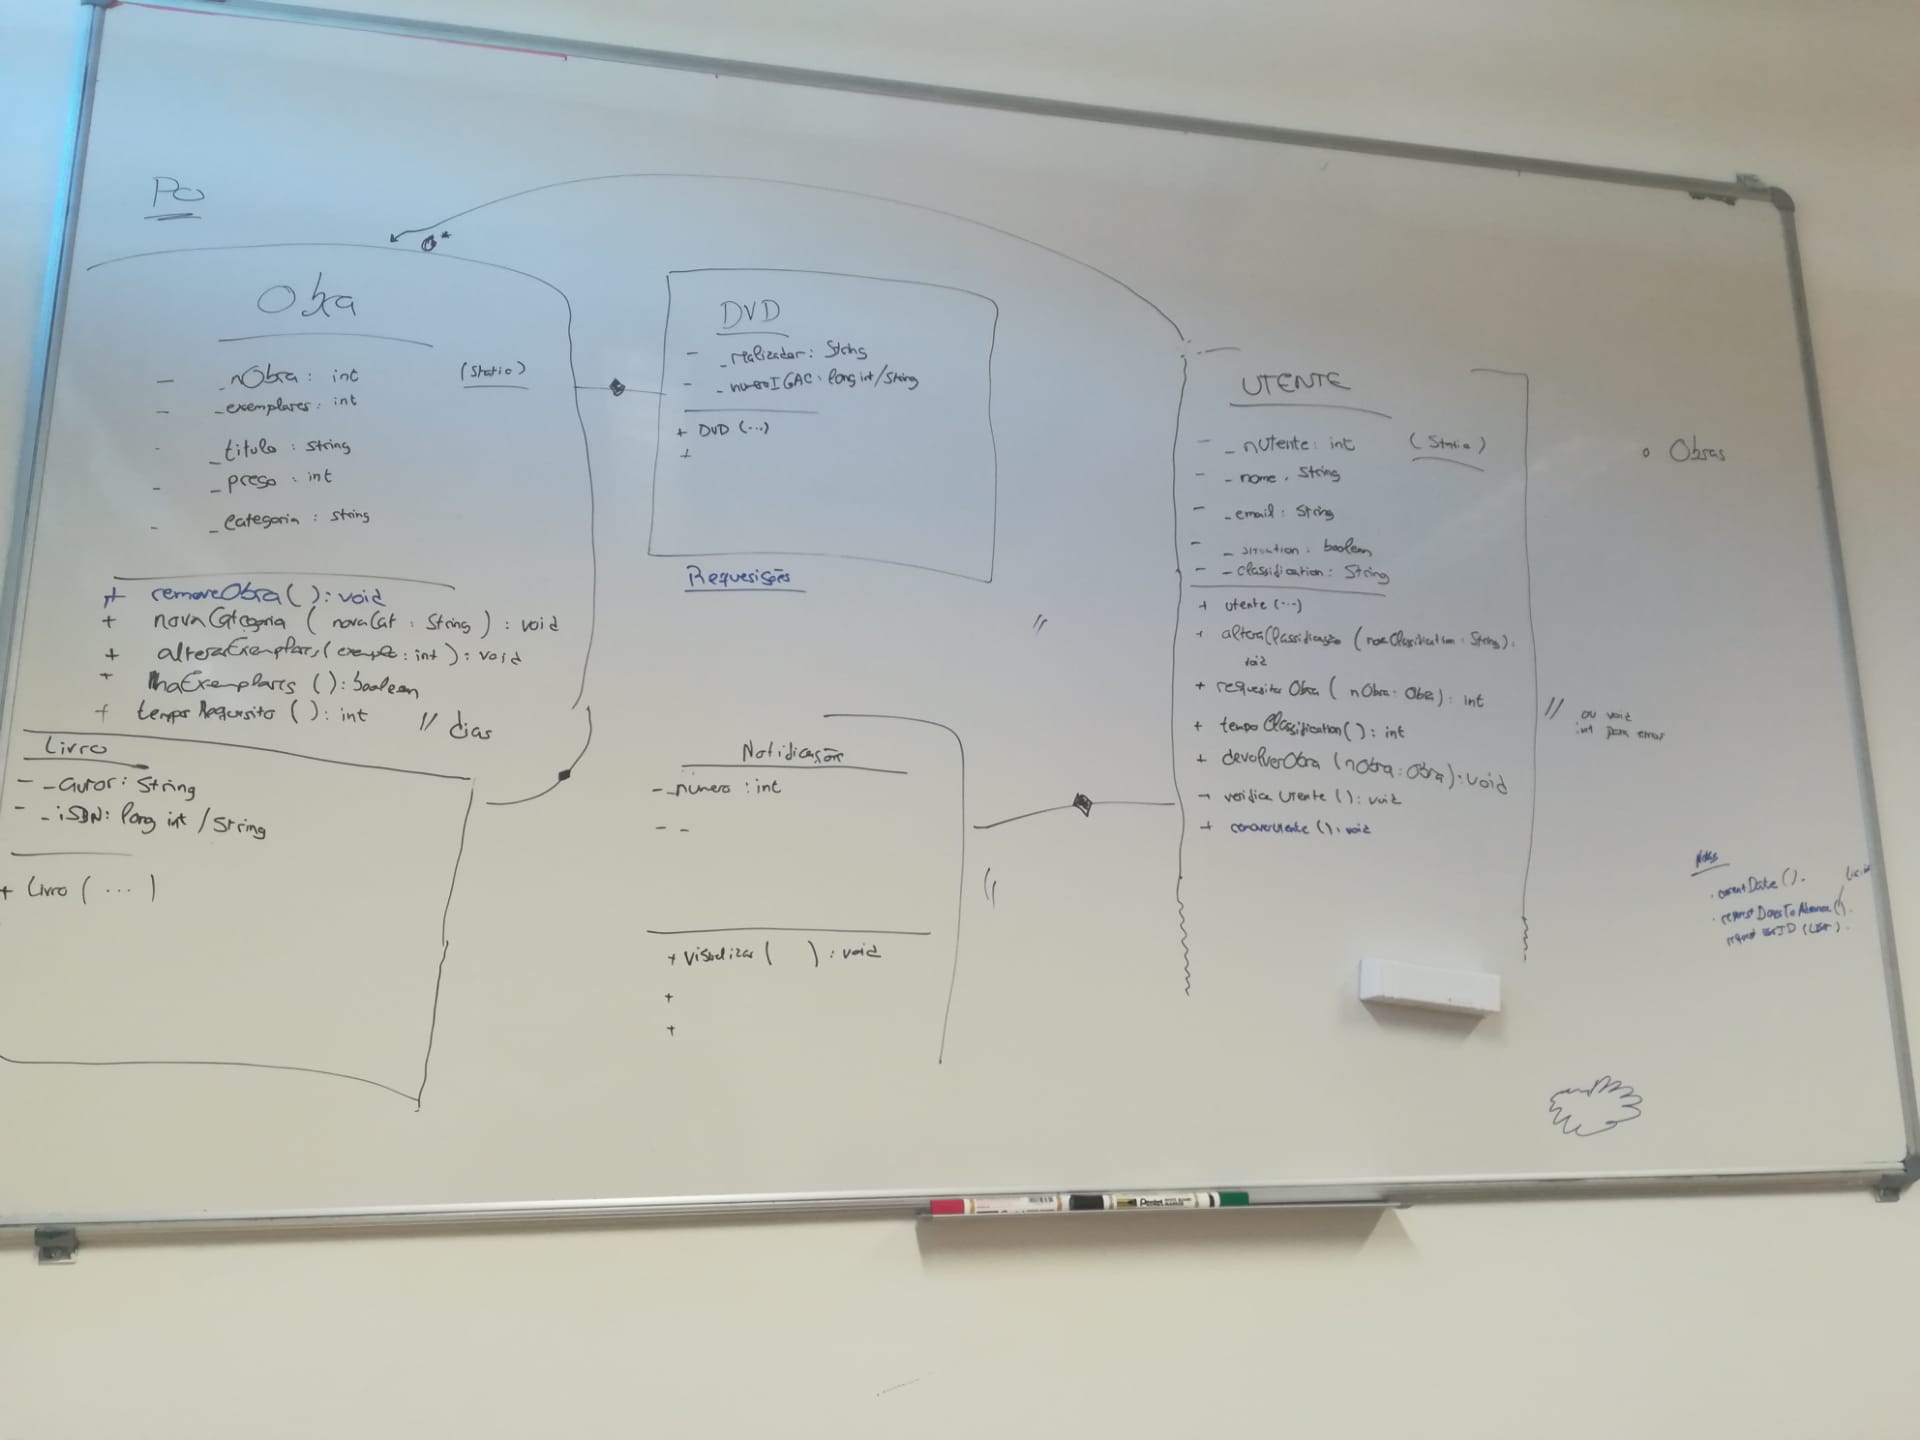 PO
0*
Obra
- _nObra: int (Static)
- _exemplares: int
- _titulo: string
- _preço: int
- _categoria: string
+ removeObra( ): void
+ novaCategoria ( novaCat: String ): void
+ alterarExemplares( : int ): void
+ haExemplares ( ): boolean
+ tempoRequisito ( ): int // dias
Livro
- _autor: String
- _iSBN: long int / String
+ Livro ( ... )
DVD
- _realizador: String
- _numeroIGAC: long int/String
+ DVD (...)
+
Requesições
//
Notificação
- _numero: int
- -
+ visualizar ( ): void
+
+
//
UTENTE
- _nUtente: int (Static)
- _nome: String
- _email: String
- _situation: boolean
- _classification: String
+ utente (...)
+ alteraClassificação ( : String):
void
+ requesitaObra ( nObra: Obra): int
// ou void
int para error
+ tempoClassification( ): int
+ devolverObra (nObra: Obra): void
+ verifica Utente ( ): void
+ ( ): void
∘ Obras
Notas
. currentDate ( ).
. request DaysToAdvance( ).
request userID ( ).
Pentel